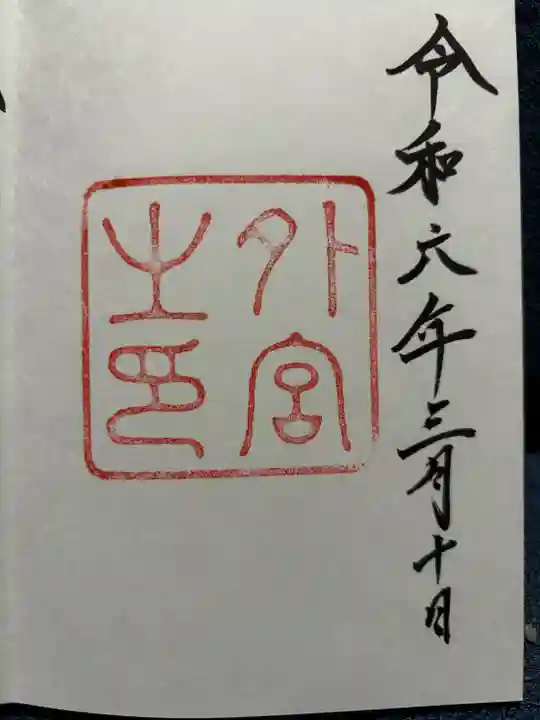 令和六年三月十日
外宮
之印